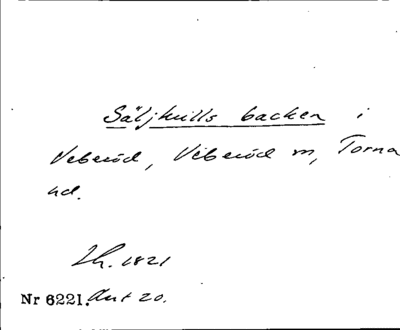 Säljkulls backen i
Veberöd, Veberöd m, Torna
hd.
Lh. 1821
Nr 6221. Akt 20.